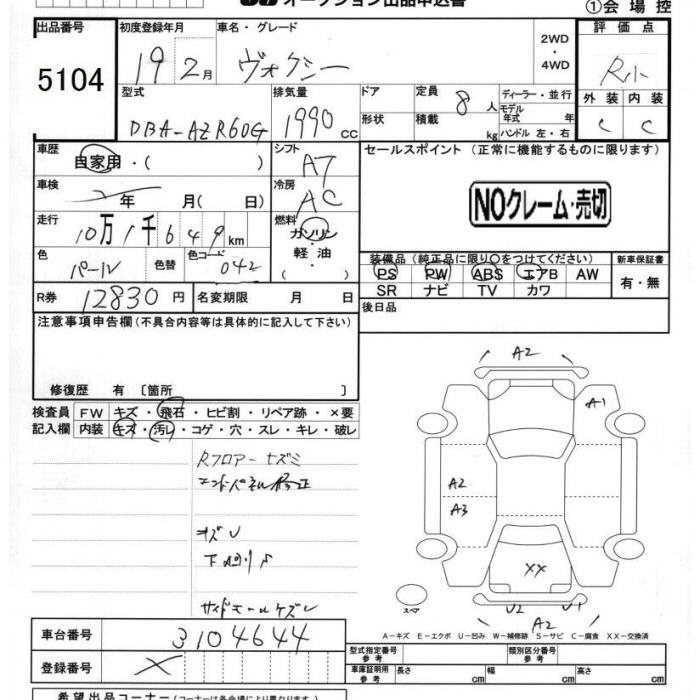 オークション出品申込書
①会場控
出品番号
5104
初度登録年月
19 2月
車名・グレード
ヴォクシー
2WD
・
4WD
評価点
R小
外装 内装
C C
型式
DBA-AZR60G
排気量
1990 cc
ドア
形状
定員 8 人
積載 kg
ディーラー・並行
モデル
年式 年
ハンドル 左・右
車歴
自家用・( )
シフト
AT
車検
年 月( 日)
冷房
AC
走行
10万1千649km
燃料
ガソリン
・
軽油
・( )
色
パール
色替
色コード
042
R券 12830円
名変期限 月 日
セールスポイント (正常に機能するものに限ります)
NOクレーム・売切
装備品 (純正品に限り○をつけてください)
PS PW ABS エアB AW
SR ナビ TV カワ
新車保証書
有・無
後日品
注意事項申告欄(不具合内容等は具体的に記入して下さい)
修復歴 有〔箇所 〕
検査員
記入欄
FW キズ・飛石・ヒビ割・リペア跡・×要
内装 キズ・汚レ・コゲ・穴・スレ・キレ・破レ
Rフロアーキズミ
エンドパネル修正
キズU
下廻り
サイドモールケズレ
A2
A1
A2
A3
XX
U2 U1
A2
スペア
A-キズ E-エクボ U-凹み W-補修跡 S-サビ C-腐食 XX-交換済
車台番号 3104644
登録番号 X
型式指定番号
参考
類別区分番号
参考
車庫証明用
参考
長さ cm
幅 cm
高さ cm
希望出品コーナー (コーナーは各会場により異なります)